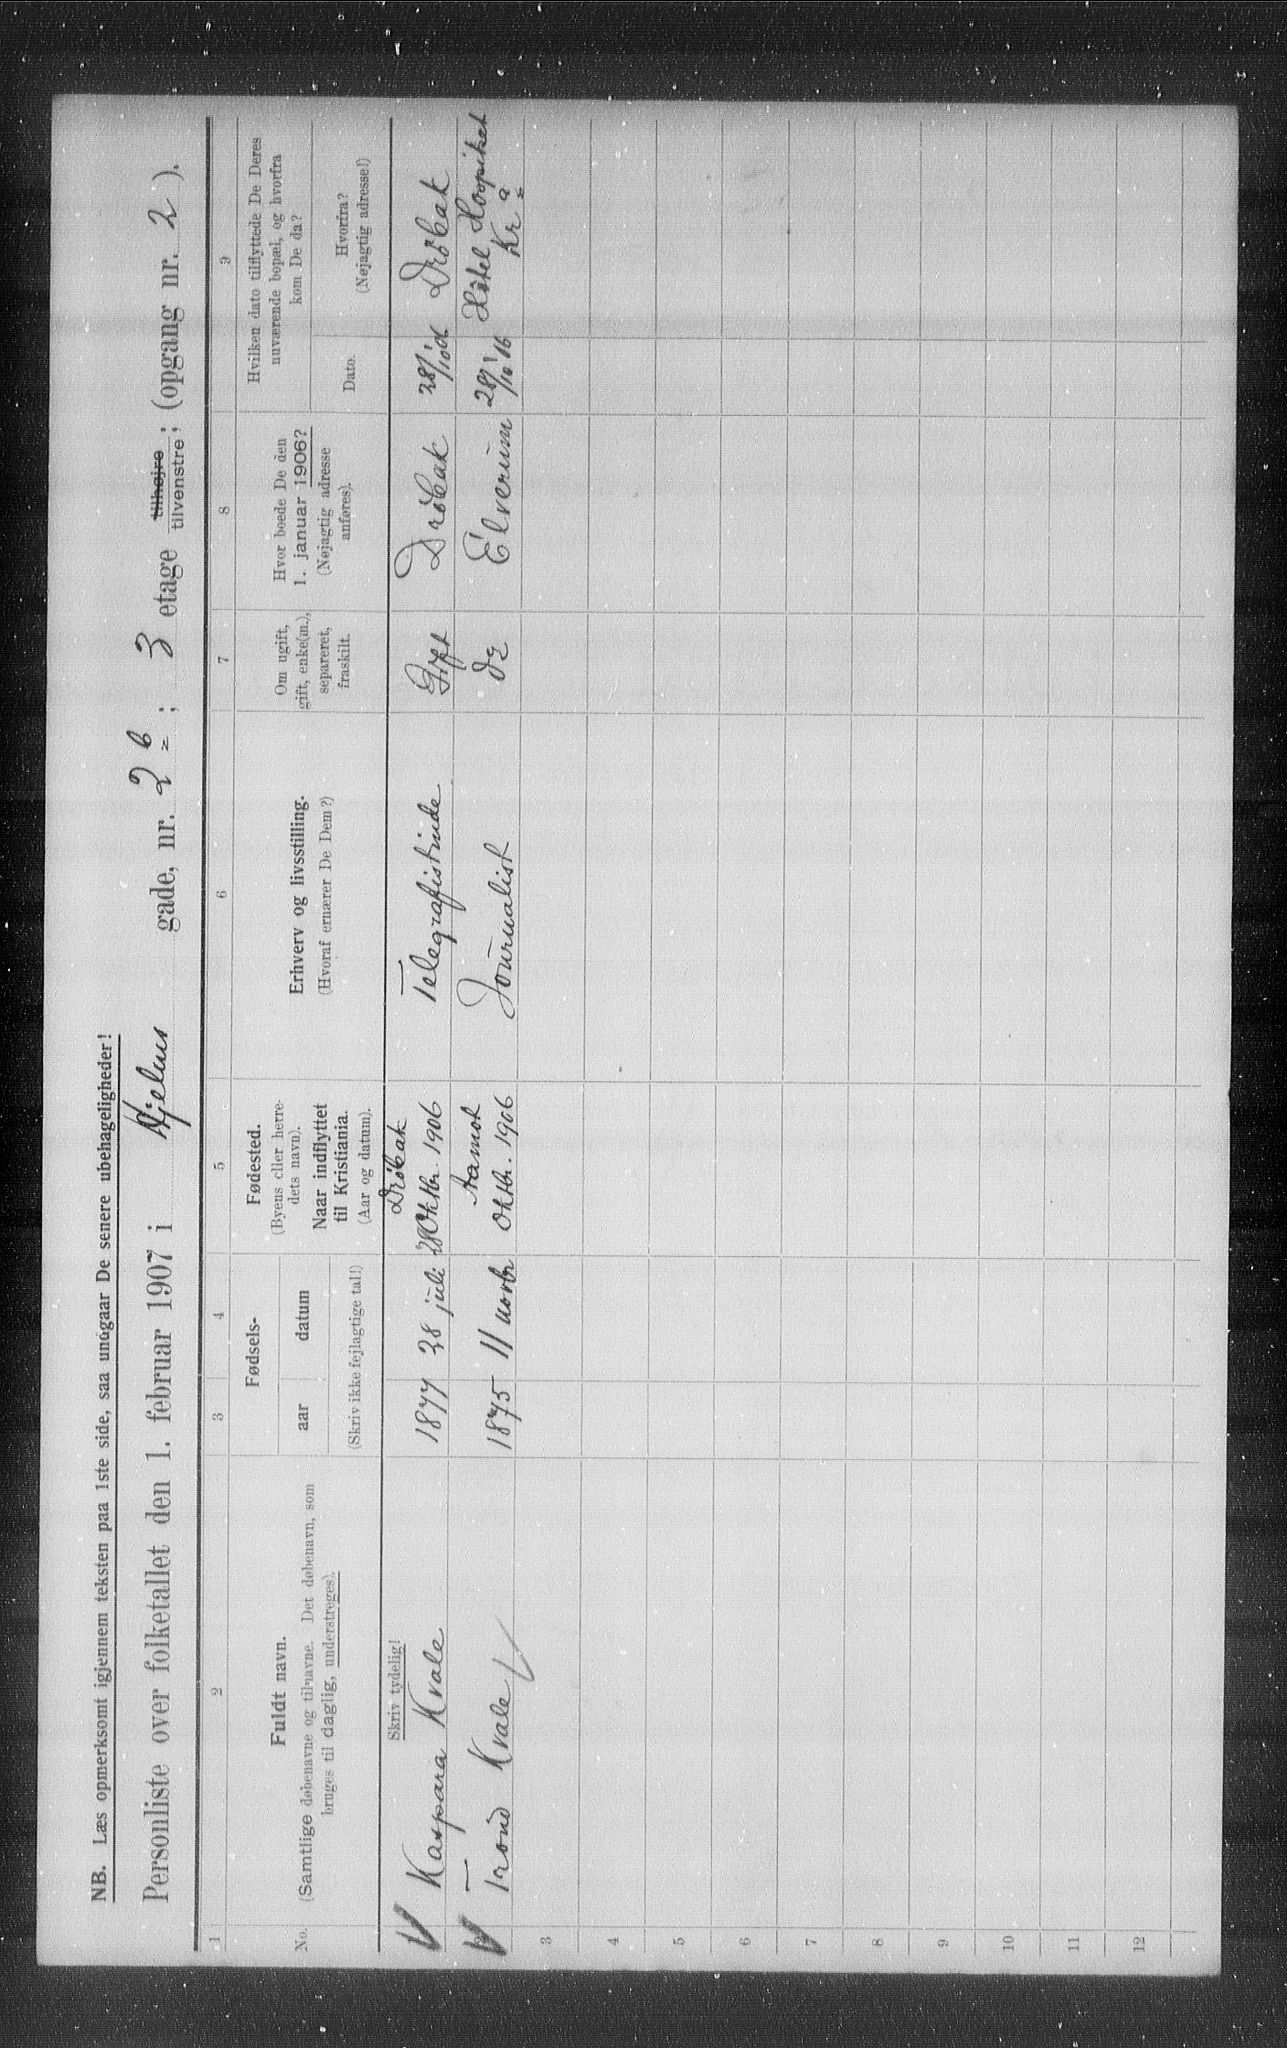 NB. Læs opmerksomt igjennem teksten paa 1ste side, saa undgaar De senere ubehageligheder!
Personliste over folketallet den 1. februar 1907 i Hjelms gade, nr. 2 b; 3 etage tilhøjre tilvenstre; (opgang nr. 2).
1 2 3 4 5 6 7 8 9
No.
Fuldt navn.
(Samtlige døbenavne og tilnavne. Det døbenavn, som
bruges til daglig, understreges).
Fødsels-
aar datum
(Skriv ikke fejlagtige tal!)
Fødested.
(Byens eller herre-
dets navn).
Naar indflyttet
til Kristiania.
(Aar og datum).
Erhverv og livsstilling.
(Hvoraf ernærer De Dem?)
Om ugift,
gift, enke(m.),
separeret,
fraskilt.
Hvor boede De den
1. januar 1906?
(Nøjagtig adresse
anføres).
Hvilken dato tilflyttede De Deres
nuværende bopæl, og hvorfra
kom De da?
Dato.
Hvorfra?
(Nøjagtig adresse!)
Skriv tydelig!
Drøbak
Kaspara Kvale 1877 28 juli 28 Oktbr. 1906 Telegrafistinde Gift Drøbak 28/10 06 Drøbak
Aamot
Trond Kvale 1875 11 novbr Oktbr. 1906 Journalist do Elverum 28/10 16 Hotel Hospitset
Kr a
3
4
5
6
7
8
9
10
11
12